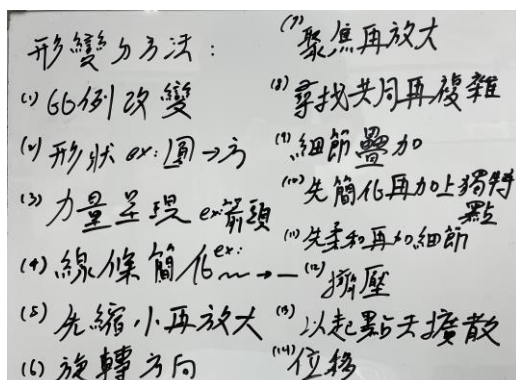 形變的方法：
(1) 比例改變
(2) 形狀 ex: 圓→方
(3) 力量呈現 ex: 箭頭
(4) 線條簡化 ex: ～→—
(5) 先縮小再放大
(6) 旋轉方向
(7) 聚焦再放大
(8) 尋找共同再複雜
(9) 細節疊加
(10) 先簡化再加上獨特點
(11) 先柔和再加細節
(12) 擠壓
(13) 以起點去擴散
(14) 位移